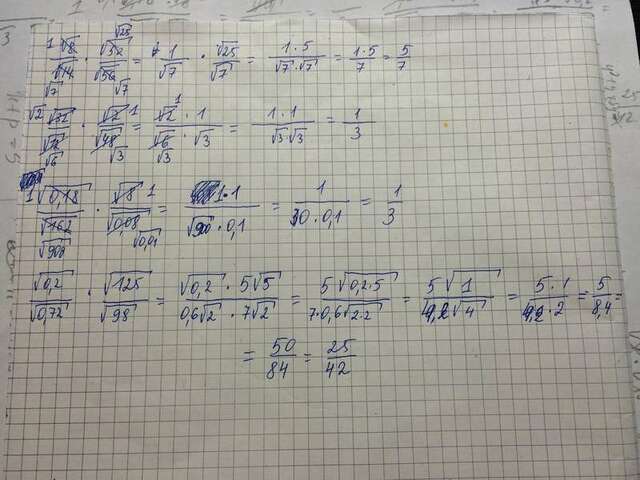 1 √8/√14 √7 · √25 √32/√56 √7 = 1/√7 · √25/√7 = 1·5/√7·√7 = 1·5/7 = 5/7
√2 √32/√72 √6 · √2 1/√48 √3 = √2 1 · 1/√6 √3 · √3 = 1·1/√3√3 = 1/3
1 √0,18/√162 √900 · √8 1/√0,08 √0,01 = 1·1/√900·0,1 = 1/30·0,1 = 1/3
√0,2/√0,72 · √125/√98 = √0,2 · 5√5/0,6√2 · 7√2 = 5√0,2·5/7·0,6√2·2 = 5√1/4,2√4 = 5·1/4,2·2 = 5/8,4 =
= 50/84 = 25/42